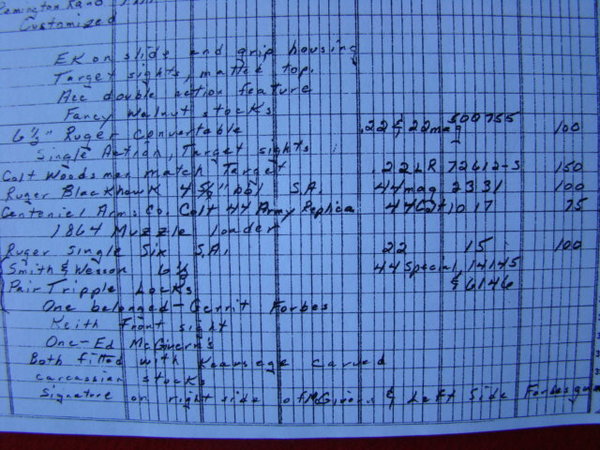 Remington Rand
Customized
EK on slide and grip housing
Target sights, matted top.
Acc double action feature
Fancy walnut stocks
6 1/2" Ruger Convertable .22 & 22mag 500755 100
Single Action, Target sights
Colt Woodsman Match Target .22LR 72612-S 150
Ruger Blackhawk 4 5/8" bbl S.A. 44mag 2331 100
Centeniel Arms Co. Colt 44 Army Replica 44Cal 1017 75
1864 Muzzle loader
Ruger Single Six S.A. 22 15 100
Smith & Wesson 6 1/2 44 Special, 14145
Pair Tripple Locks & 6146
One belonged - Gerrit Forbes
Keith Front sight
One - Ed McGivern's
Both fitted with Kearsage carved
carcassian stocks
Signature on right side of McGivern & Left Side Forbes gun